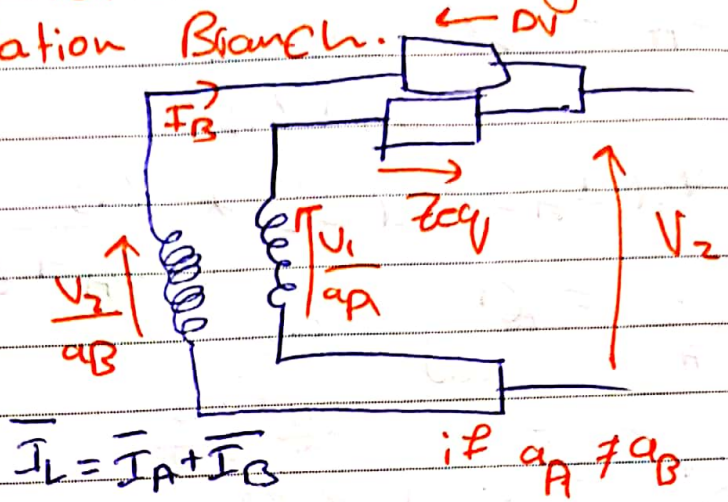 ation Branch.
← DV
I_B
Zeq
V₁/a_A
V₂/a_B
V₂
I̅_L = I̅_A + I̅_B
if a_A ≠ a_B